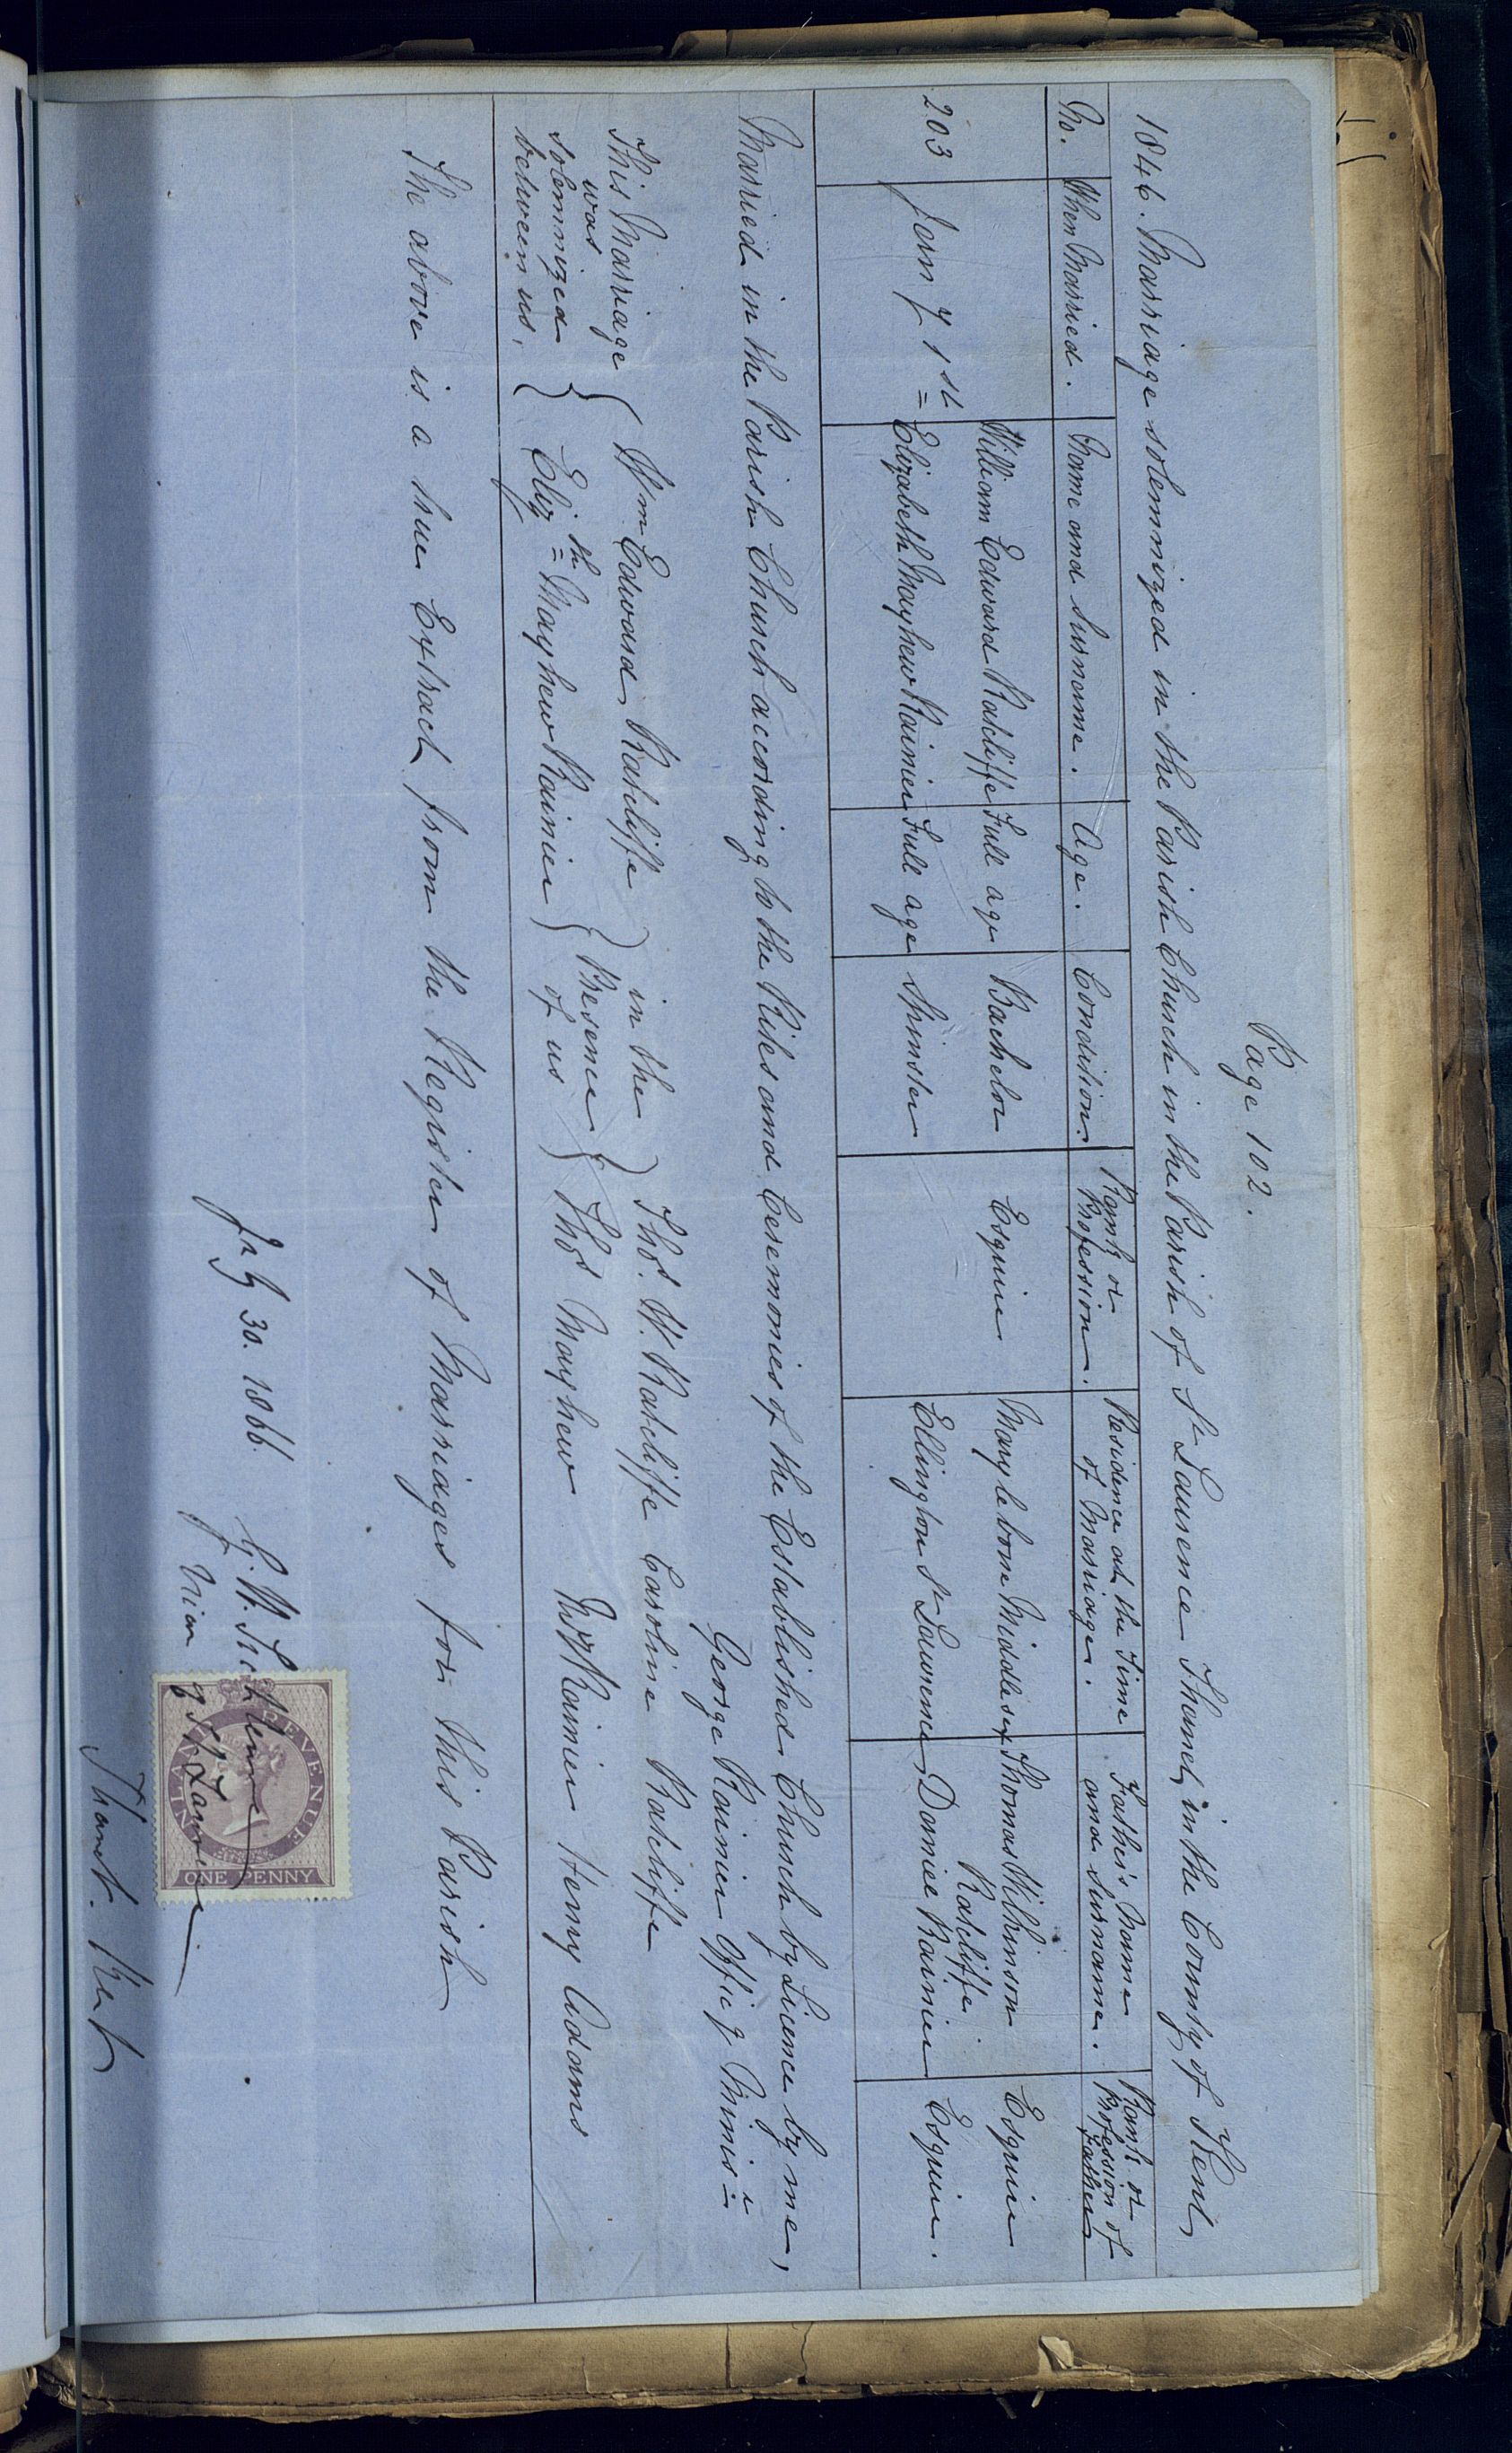 Page 102.
1846. Marriage solemnized in the Parish Church in the Parish of St Laurence Thanet, in the County of Kent
No. When Married. Name and Surname. Age. Condition. Rank or Profession. Residence at the Time of Marriage. Father's Name and Surname. Rank or Profession of Father
203 Jany 1st William Edward Ratcliffe Full age Bachelor Esquire Marylebone Middlesex Thomas Wilkinson Ratcliffe Esquire
Elizabeth Mayhew Rainier Full age Spinster Ellington St Lawrence Daniel Rainier Esquire.
Married in the Parish Church according to the Rites and Ceremonies of the Established Church by Licence by me,
George Rainier Offic g Minis r
This Marriage was solemnized between us, { Wm Edward Ratcliffe } in the Presence of us { Thos. W. Ratcliffe Caroline Ratcliffe
Eliz th Mayhew Rainier Thos Mayhew Rainier Henry Adams
The above is a true Extract from the Register of Marriages for this Parish
July 30. 1866.
Vicar of St Lawrence
Thanet. Kent
INLAND REVENUE
ONE PENNY